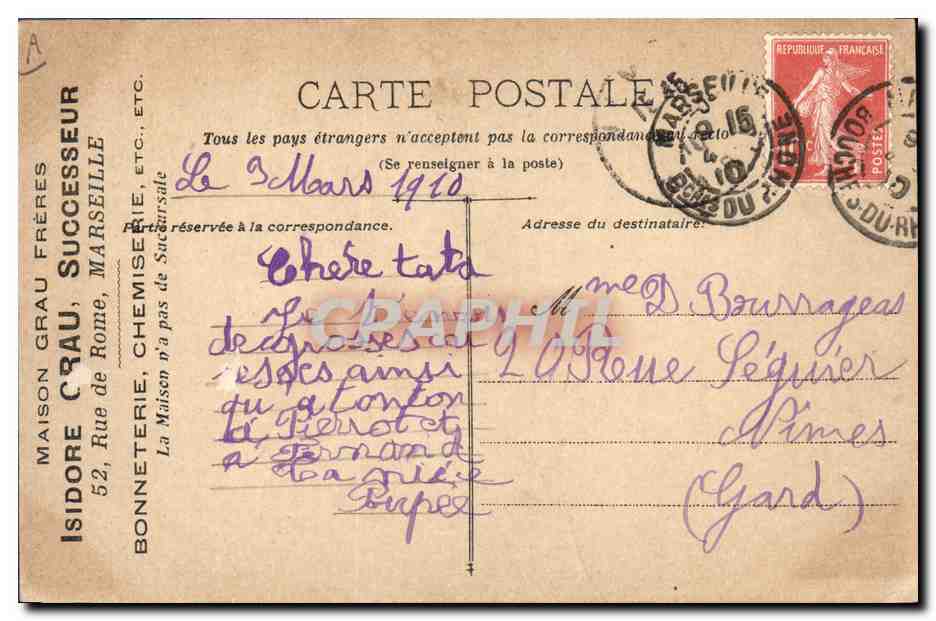 A
MAISON GRAU FRÈRES
ISIDORE GRAU, SUCCESSEUR
52, Rue de Rome, MARSEILLE
BONNETERIE, CHEMISERIE, ETC., ETC.
La Maison n'a pas de Succursale
CARTE POSTALE
Tous les pays étrangers n'acceptent pas la correspondance au recto
(Se renseigner à la poste)
RÉPUBLIQUE FRANÇAISE
POSTES
MARSEILLE
15
10
BOUCHES-DU-RH
Le 3 Mars 1910
Partie réservée à la correspondance.
Adresse du destinataire.
Chère tata
Je
de grosses ca
ainsi
qu a tonton
a Pierrot et
a Fernand
Ta nièce
Poupée
M me D Bourrageas
20 Rue Séguier
Nimes
(Gard)
CPAPHIL